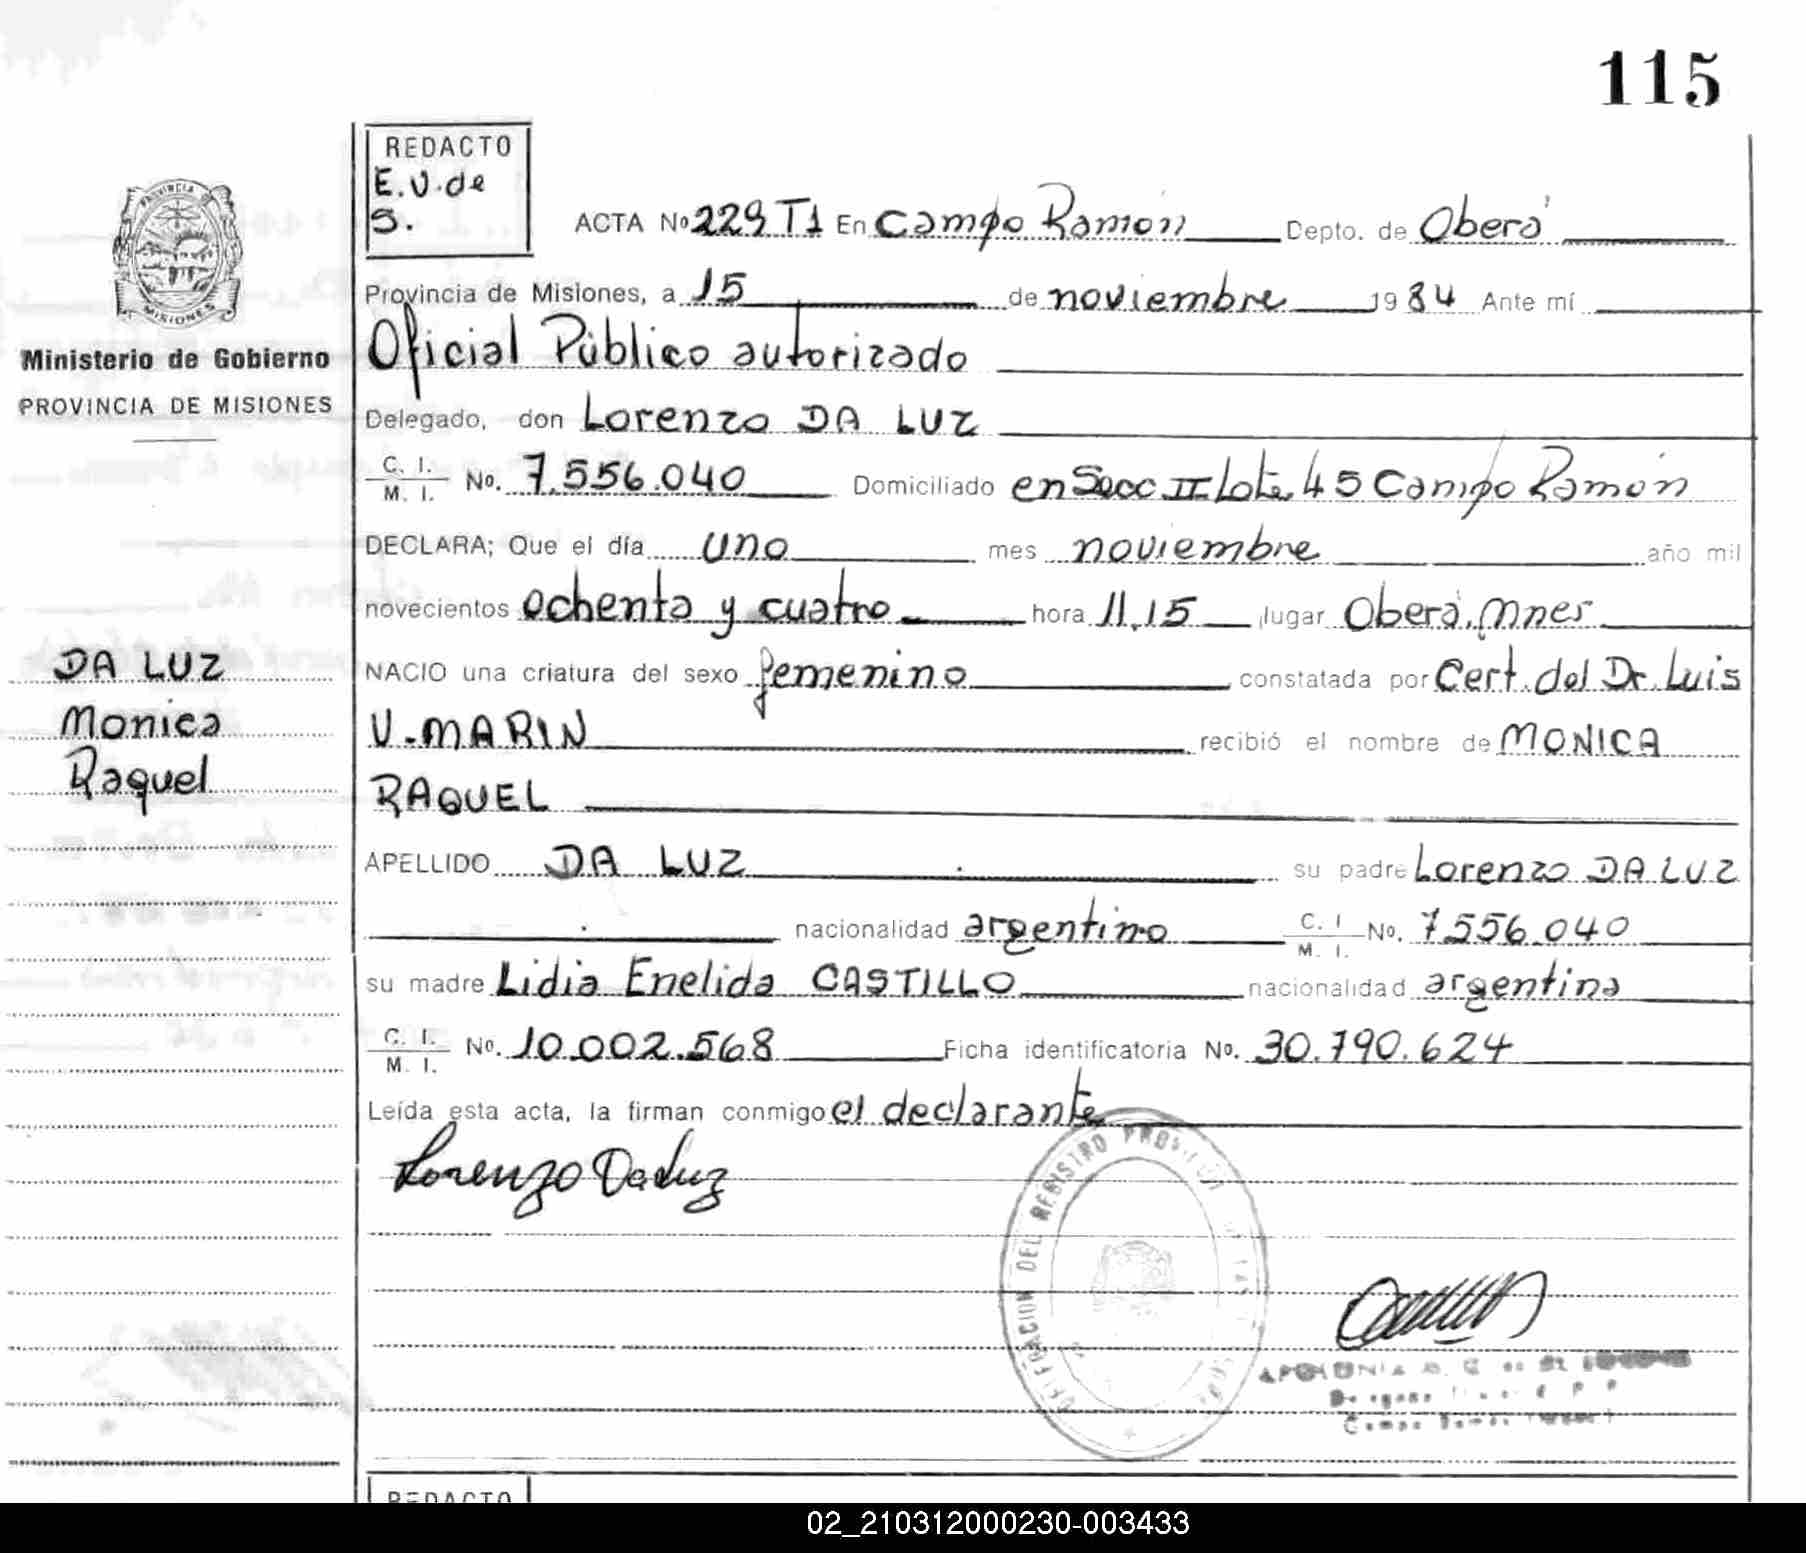 115
REDACTO
E.V.de
S.
ACTA Nº 229 T1 En Campo Ramón Depto. de Oberá
Provincia de Misiones, a 15 de noviembre 1984 Ante mí
Oficial Público autorizado
Delegado, don Lorenzo DA LUZ
C. I. / M. I. No. 7.556.040 Domiciliado en Secc II Lote 45 Campo Ramón
DECLARA; Que el día uno mes noviembre año mil
novecientos ochenta y cuatro hora 11,15 lugar Oberá, Mnes
NACIO una criatura del sexo femenino constatada por Cert. del Dr. Luis
V. MARIN recibió el nombre de MONICA
RAQUEL
APELLIDO DA LUZ su padre Lorenzo DA LUZ
nacionalidad argentino C. I. / M. I. No. 7.556.040
su madre Lidia Enelida CASTILLO nacionalidad argentina
C. I. / M. I. No. 10.002.568 Ficha identificatoria No. 30.790.624
Leída esta acta, la firman conmigo el declarante
Lorenzo Da Luz
DELEGACION DEL REGISTRO
APOLONIA
Campo Ramón
Ministerio de Gobierno
PROVINCIA DE MISIONES
PROVINCIA
MISIONES
DA LUZ
Monica
Raquel
REDACTO
02_210312000230-003433